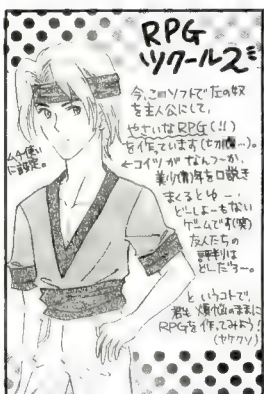 RPG
ツクール2
今、このソフトで左の奴
を主人公にして、
やさいなRPG(!!)
を作っています(七切…)。
←コイツが なんつーか、
美少(青)年を口説き
まくるとゆー、
どーしよーもない
ゲームです(笑)
友人たちの
評判は
どーだろー。
ムチ使い
に設定。
と いうコトで、
君も 煩悩のままに
RPGを作ってみよう!
(ヤケクソ)